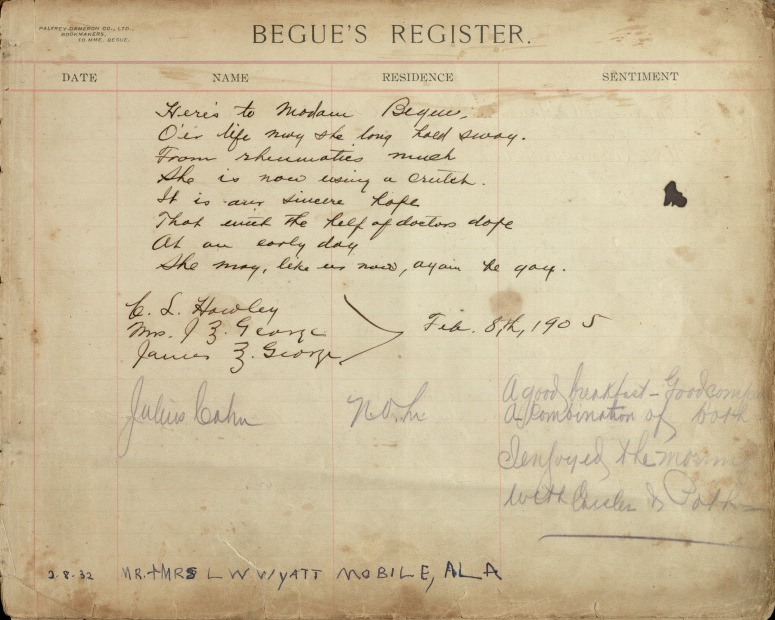 PALFREY-DAMERON CO., LTD.,
BOOKMAKERS,
TO MME. BEGUE.
BEGUE'S REGISTER.
DATE NAME RESIDENCE SENTIMENT
Here's to Madam Begue,
O'er life may she long hold sway.
From rheumatics much
She is now using a crutch.
It is our sincere hope
That with the help of doctors dope
At an early day
She may, like us now, again be gay.
C. L. Howley
Mrs. J Z. George
James Z. George
Feb. 8th, 1905
Julius Cahn N.O. La
A good breakfast - Good comp
A combination of both
I enjoyed the morning
with &
2-8-32 MR. + MRS L W WYATT MOBILE, ALA